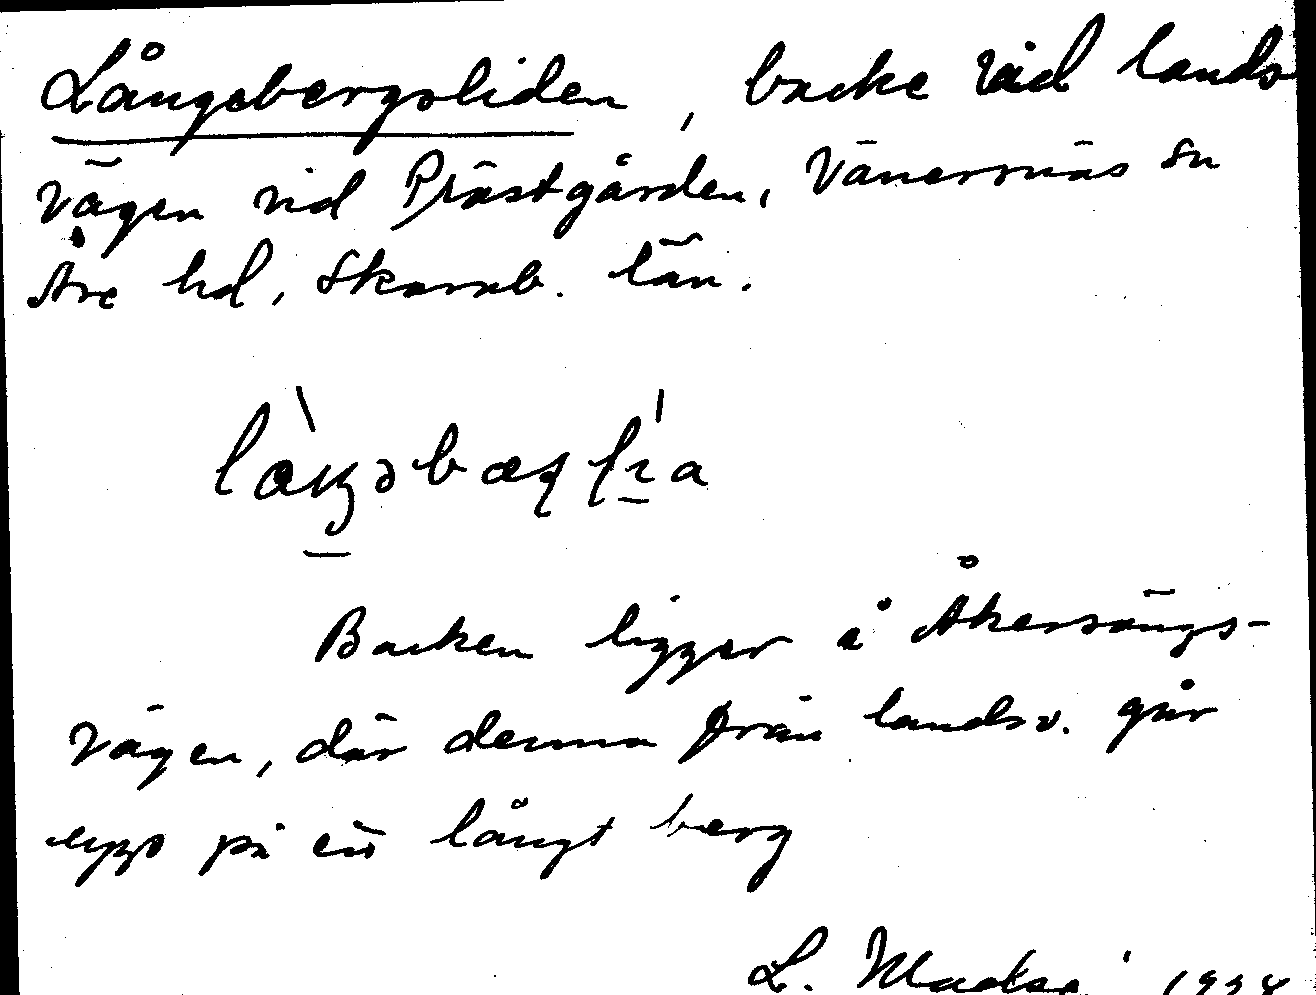 Långebergsliden, backe vid lands
vägen vid Prästgården, Vänersnäs sn
Åse hd, Skarab. län.
Backen ligger å Åkersängs-
vägen, där denna från landsv. går
upp på ett långt berg
L.